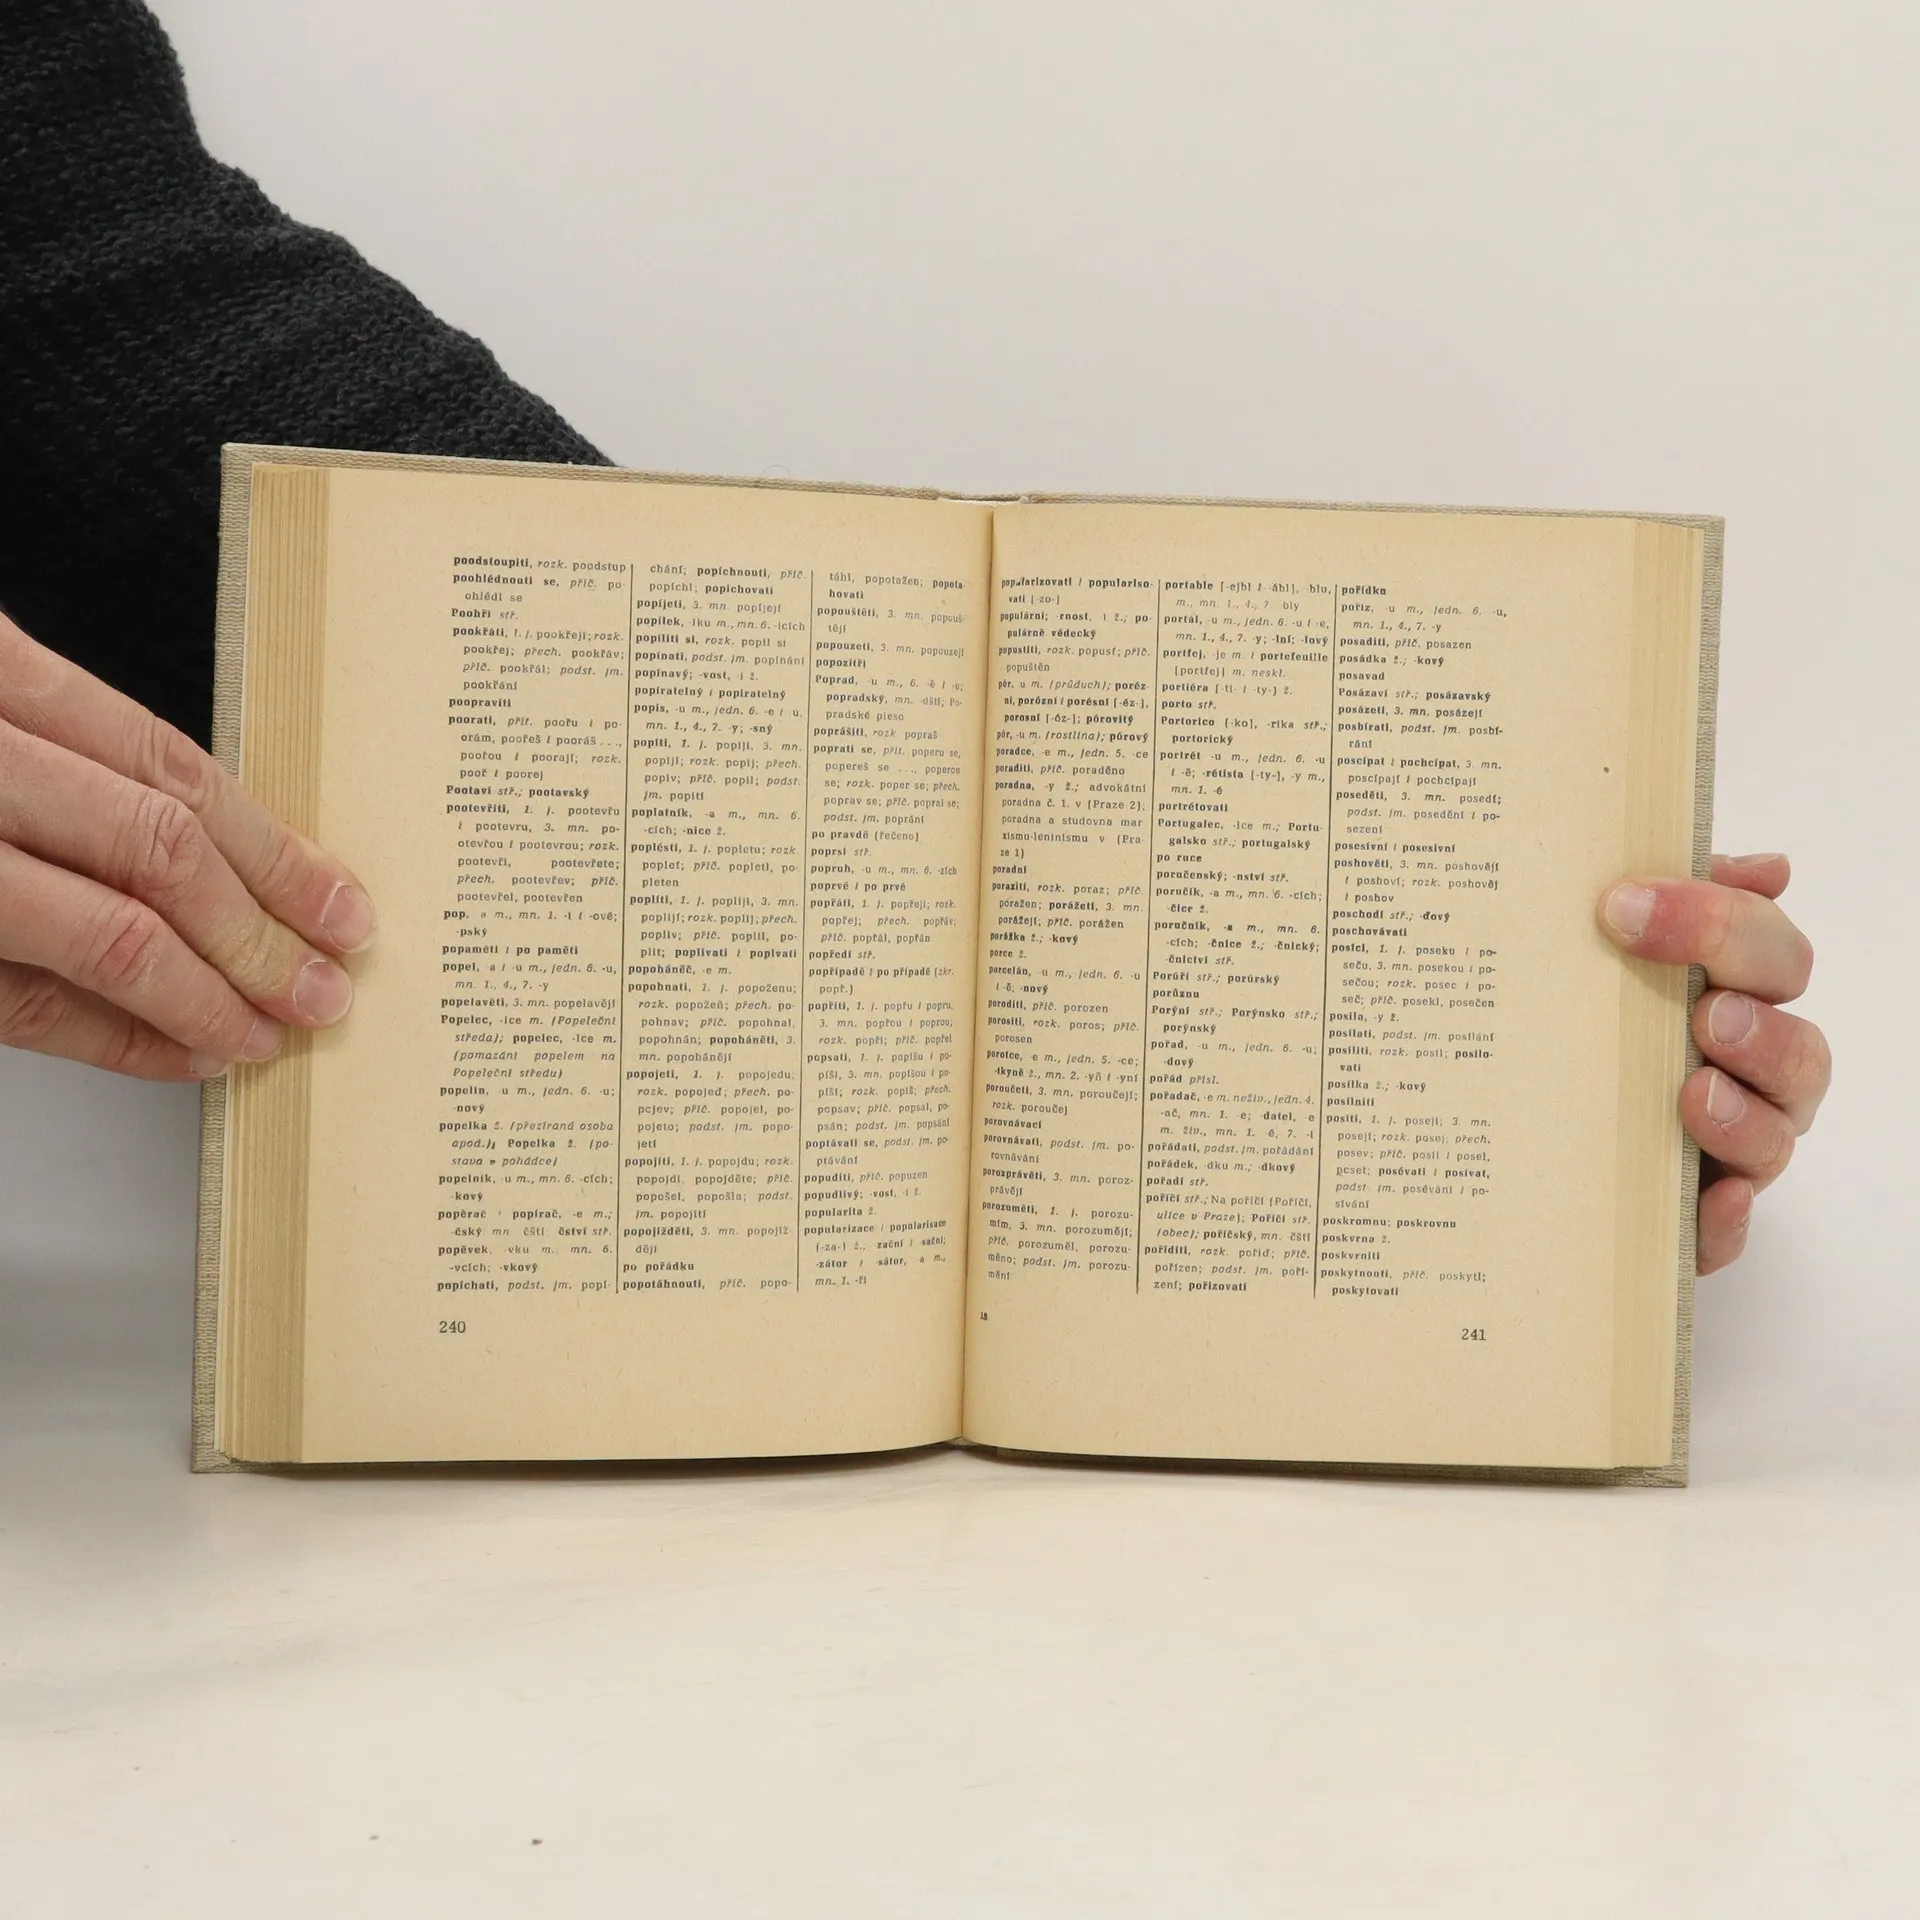 poodstoupiti, rozk. poodstup
poohlédnouti se, příč. po-
ohlédl se
Poohří stř.
pookřáti, 1. j. pookřeji; rozk.
pookřej; přech. pookřáv;
příč. pookřál; podst. jm.
pookřání
poopraviti
poorati, přít. poořu i po-
orám, poořeš i pooráš ...,
poořou i poorají; rozk.
pooř i poorej
Pootaví stř.; pootavský
pootevříti, 1. j. pootevřu
i pootevru, 3. mn. po-
otevřou i pootevrou; rozk.
pootevři, pootevřete;
přech. pootevřev; příč.
pootevřel, pootevřen
pop, -a m., mn. 1. -i i -ové;
-pský
popaměti i po paměti
popel, -a i -u m., jedn. 6. -u,
mn. 1., 4., 7. -y
popelavěti, 3. mn. popelavějí
Popelec, -lce m. (Popeleční
středa); popelec, -lce m.
(pomazání popelem na
Popeleční středu)
popelín, -u m., jedn. 6. -u;
-nový
popelka ž. (přezíraná osoba
apod.); Popelka ž. (po-
stava v pohádce)
popelník, -u m., mn. 6. -cích;
-kový
popěrač i popírač, -e m.;
-čský, mn. -čští; -čství stř.
popěvek, -vku m., mn. 6.
-vcích; -vkový
popíchati, podst. jm. popí-
chání; popíchnouti, příč.
popíchl; popichovati
popíjeti, 3. mn. popíjejí
popílek, -lku m., mn. 6. -lcích
popíliti si, rozk. popil si
popínati, podst. jm. popínání
popínavý; -vost, -i ž.
popíratelný i popiratelný
popis, -u m., jedn. 6. -e i -u,
mn. 1., 4., 7. -y; -sný
popíti, 1. j. popiji, 3. mn.
popijí; rozk. popij; přech.
popiv; příč. popil; podst.
jm. popití
poplatník, -a m., mn. 6.
-cích; -nice ž.
poplésti, 1. j. popletu; rozk.
popleť; příč. popletl, po-
pleten
poplíti, 1. j. popliji, 3. mn.
poplijí; rozk. poplij; přech.
popliv; příč. poplil, po-
plit; poplívati i poplivati
popoháněč, -e m.
popohnati, 1. j. popoženu;
rozk. popožeň; přech. po-
pohnav; příč. popohnal,
popohnán; popoháněti, 3.
mn. popohánějí
popojeti, 1. j. popojedu;
rozk. popojeď; přech. po-
pojev; příč. popojel, po-
pojeto; podst. jm. popo-
jetí
popojíti, 1. j. popojdu; rozk.
popojdi, popojděte; příč.
popošel, popošla; podst.
jm. popojití
popojížděti, 3. mn. popojíž-
dějí
po pořádku
popotáhnouti, příč. popo-
táhl, popotažen; popota-
hovati
popouštěti, 3. mn. popouš-
tějí
popouzeti, 3. mn. popouzejí
popozítří
Poprad, -u m., 6. -ě i -u;
popradský, mn. -dští; Po-
pradské pleso
poprášiti, rozk. popraš
poprati se, přít. poperu se,
popereš se ..., poperou
se; rozk. poper se; přech.
poprav se; příč. popral se;
podst. jm. poprání
po pravdě (řečeno)
poprsí stř.
popruh, -u m., mn. 6. -zích
poprvé i po prvé
popřáti, 1. j. popřeji; rozk.
popřej; přech. popřáv;
příč. popřál, popřán
popředí stř.
popřípadě i po případě (zkr.
popř.)
popříti, 1. j. popřu i popru,
3. mn. popřou i poprou;
rozk. popři; příč. popřel
popsati, 1. j. popíšu i po-
píši, 3. mn. popíšou i po-
píší; rozk. popiš; přech.
popsav; příč. popsal, po-
psán; podst. jm. popsání
poptávati se, podst. jm. po-
ptávání
popuditi, příč. popuzen
popudlivý; -vost, -i ž.
popularita ž.
popularizace i popularisace
[-za-] ž., -zační i -sační;
-zátor i -sátor, -a m.,
mn. 1. -ři
240
popularizovati i populariso-
vati [-zo-]
populární; -rnost, -i ž.; po-
pulárně vědecký
popustiti, rozk. popusť; příč.
popuštěn
pór, -u m. (průduch); poréz-
ní, porózní i porésní [-éz-],
porosní [-óz-]; pórovitý
pór, -u m. (rostlina); pórový
poradce, -e m., jedn. 5. -ce
poraditi, příč. poraděno
poradna, -y ž.; advokátní
poradna č. 1. v (Praze 2);
poradna a studovna mar-
xismu-leninismu v (Pra-
ze 1)
poradní
poraziti, rozk. poraz; příč.
poražen; porážeti, 3. mn.
porážejí; příč. porážen
porážka ž.; -kový
porce ž.
porcelán, -u m., jedn. 6. -u
i -ě; -nový
poroditi, příč. porozen
porositi, rozk. poros; příč.
porosen
porotce, -e m., jedn. 5. -ce;
-tkyně ž., mn. 2. -yň i -yní
poroučeti, 3. mn. poroučejí;
rozk. poroučej
porovnávací
porovnávati, podst. jm. po-
rovnávání
porozprávěti, 3. mn. poroz-
právějí
porozuměti, 1. j. porozu-
mím, 3. mn. porozumějí;
příč. porozuměl, porozu-
měno; podst. jm. porozu-
mění
portable [-ejbl i -ábl], -blu,
m., mn. 1., 4., 7. -bly
portál, -u m., jedn. 6. -u i -e,
mn. 1., 4., 7. -y; -lní; -lový
portfej, -je m. i portefeuille
[portfej] m. neskl.
portiéra [-ti- i -ty-] ž.
porto stř.
Portorico [-ko], -rika stř.;
portorický
portrét -u m., jedn. 6. -u
i -ě; -rétista [-ty-], -y m.,
mn. 1. -é
portrétovati
Portugalec, -lce m.; Portu-
galsko stř.; portugalský
po ruce
poručenský; -nství stř.
poručík, -a m., mn. 6. -cích;
-čice ž.
poručník, -a m., mn. 6.
-cích; -čnice ž.; -čnický;
-čnictví stř.
Porúří stř.; porúrský
porůznu
Porýní stř.; Porýnsko stř.;
porýnský
pořad, -u m., jedn. 6. -u;
-dový
pořád přísl.
pořadač, -e m. neživ., jedn. 4.
-ač, mn. 1. -e; -datel, -e
m. živ., mn. 1. -é, 7. -i
pořádati, podst. jm. pořádání
pořádek, -dku m.; -dkový
pořadí stř.
poříčí stř.; Na poříčí (Poříčí,
ulice v Praze); Poříčí stř.
(obec); poříčský, mn. -čští
poříditi, rozk. pořiď; příč.
pořízen; podst. jm. poří-
zení; pořizovati
pořídku
poříz, -u m., jedn. 6. -u,
mn. 1., 4., 7. -y
posaditi, příč. posazen
posádka ž.; -kový
posavad
Posázaví stř.; posázavský
posázeti, 3. mn. posázejí
posbírati, podst. jm. posbí-
rání
poscípat i pochcípat, 3. mn.
poscípají i pochcípají
poseděti, 3. mn. posedí;
podst. jm. posedění i po-
sezení
posesívní i posesivní
poshověti, 3. mn. poshovějí
i poshoví; rozk. poshověj
i poshov
poschodí stř.; -ďový
poschovávati
posíci, 1. j. poseku i po-
seču, 3. mn. posekou i po-
sečou; rozk. posec i po-
seč; příč. posekl, posečen
posila, -y ž.
posílati, podst. jm. posílání
posíliti, rozk. posil; posilo-
vati
posilka ž.; -kový
posilniti
posíti, 1. j. poseji; 3. mn.
posejí; rozk. posej; přech.
posev; příč. posil i posel,
poset; posévati i posívat,
podst. jm. posévání i po-
sívání
poskromnu; poskrovnu
poskvrna ž.
poskvrniti
poskytnouti, příč. poskytl;
poskytovati
16
241